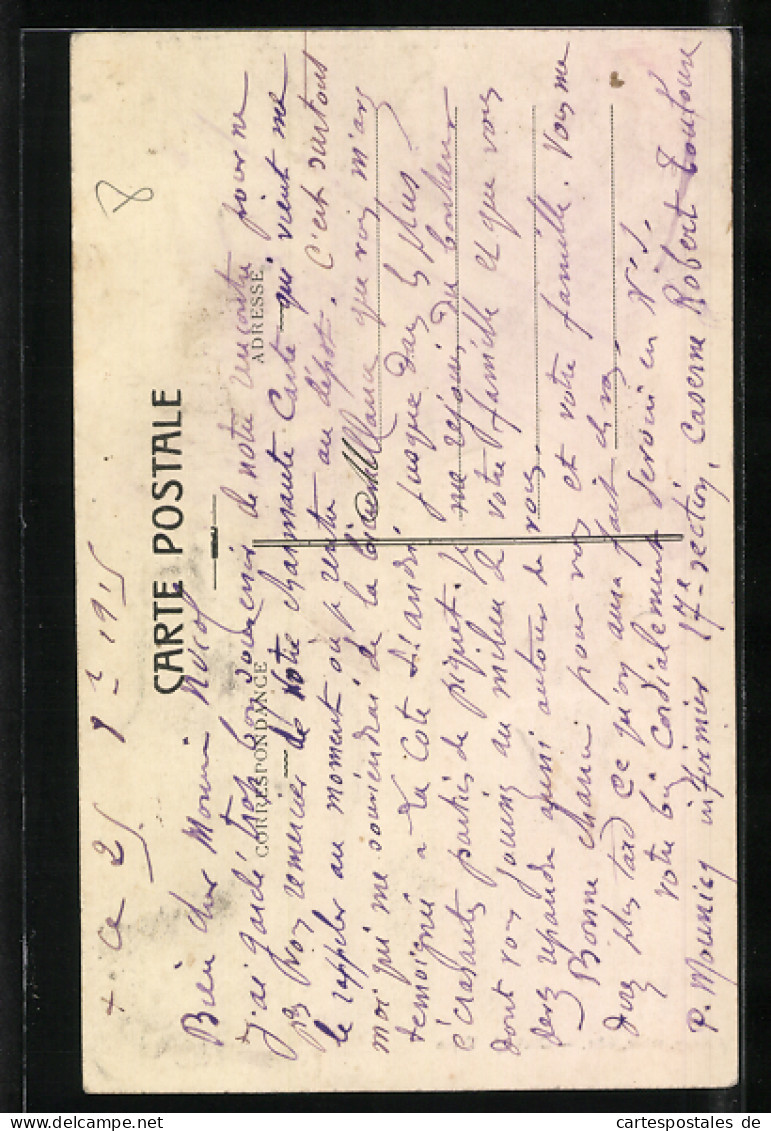 CARTE POSTALE
CORRESPONDANCE
ADRESSE
8
+ Ce 25 1915
Bien cher Monsieur
J'ai gardé trop bon souvenir de notre rencontre pour ne
pas vous remercier de votre charmante carte qui vient me
le rappeler au moment où je rentre au dépôt. C'est surtout
moi qui me souviendrai de la bienveillance que vous m'avez
témoignée à la Côte St André, jusque dans les plus
écrasantes parties de piquet. Je me réjouis du bonheur
dont vous jouissez au milieu de votre famille et que vous
devez répandre aussi autour de vous.
Bonne chance pour vous et votre famille. Vous me
direz plus tard ce qu'on aura fait de vous.
Votre bien cordialement
P. Mounier infirmier 17e section, Caserne Robert Toulouse
cartespostales de